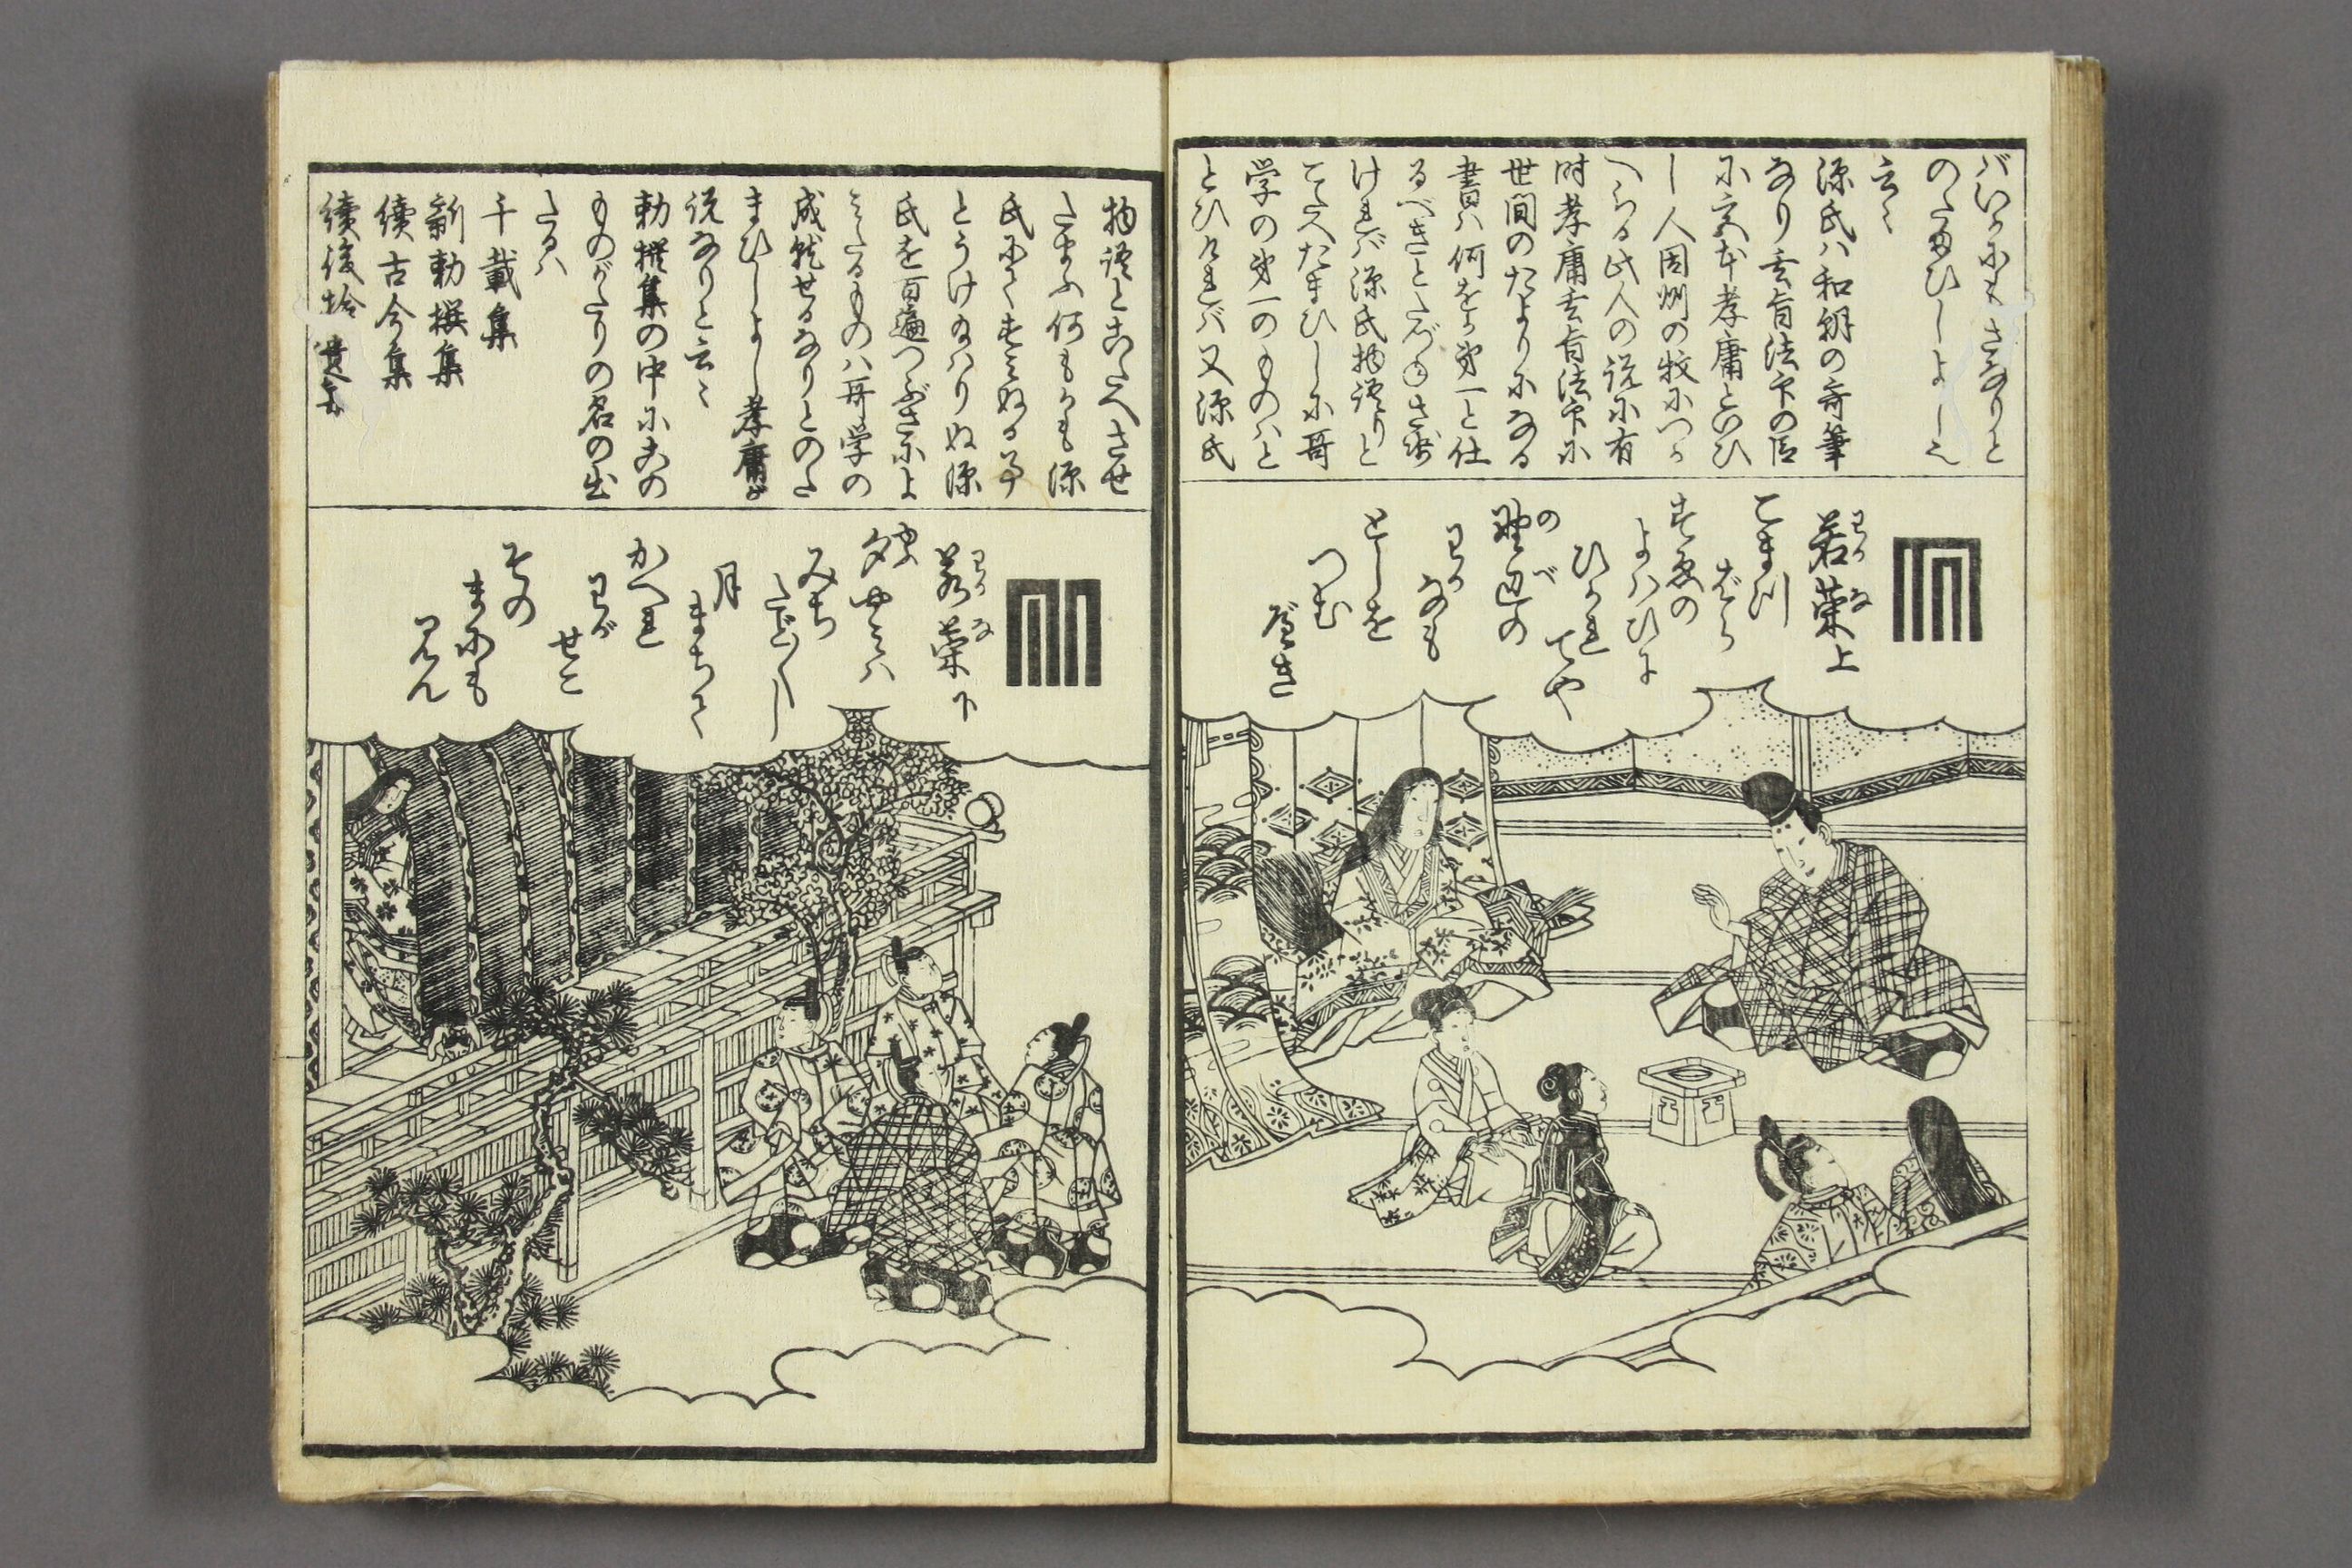 バいかにもさなりと
のたまひしよし
云々
源氏ハ和朝の奇筆
なり玄旨法印の
に宮本孝庸といひ
し人因州の牧につか
へらる此人の説に有
時孝庸玄旨法印に
世間のたよりになる
書ハ何をか第一と仕
るべきとたづ
けれバ源氏物語りと
こたへたまひしに哥
学の第一のものハと
とひければ又源氏
若菜上
わかな
こまつ
ばら
すゑの
よハひに
ひかれ
てや
野辺の
のべ
わか
なも
としを
つむ
べき
物語とこたへさせ
たまふ何もかも源
氏にて
とうけ給ハりぬ源
氏を百遍つぶさによ
みたるものハ哥学の
成就せるなりとのた
まひしよし孝庸が
説なりと云々
勅撰集の中にこの
ものがたりの名の出
たるハ
千載集
新勅撰集
続古今集
続後拾遺集
若菜下
わかな
夕やみハ
みち
たど〳〵し
月
まちて
かへれ
わが
せこ
その
まにも
みん